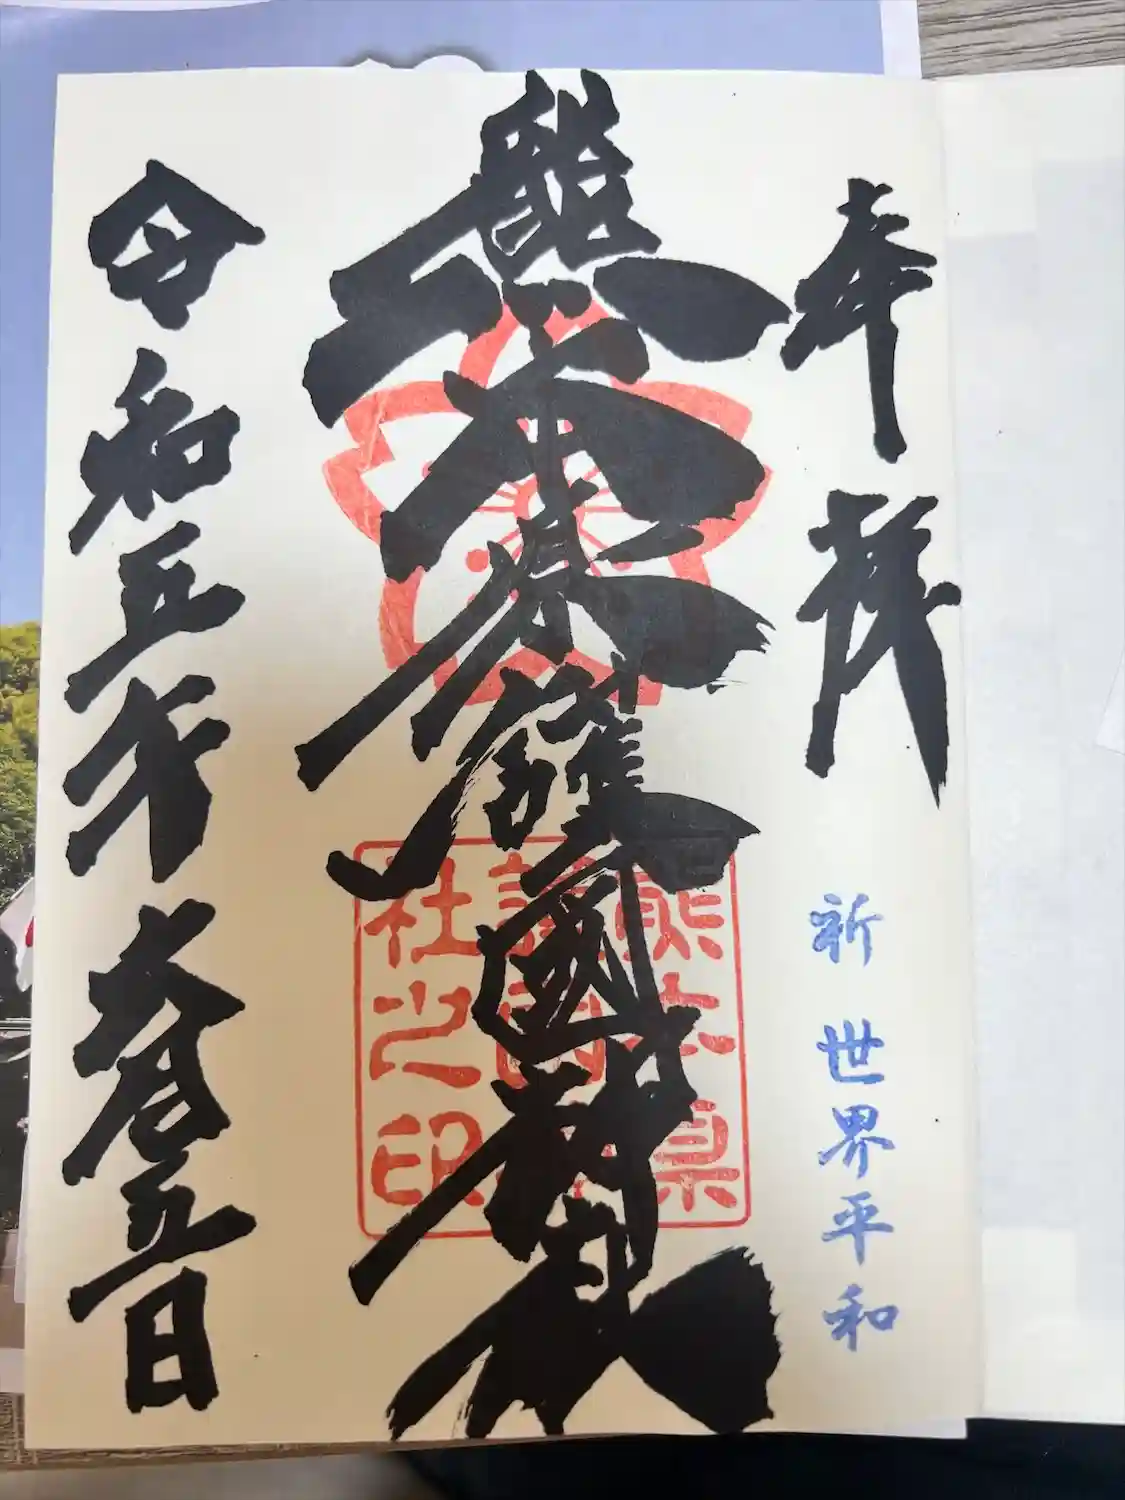 奉拝
祈 世界平和
熊本県護國神社
熊本県
護国神
社之印
令和五年 月五日